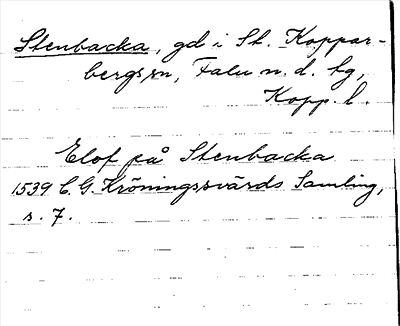 Stenbacka, gd i St. Koppar-
bergs sn, Falu n. d. hg,
Kopp. l.
Elof på Stenbacka
1539 C. G. Kröningssvärds Samling,
s. 7.